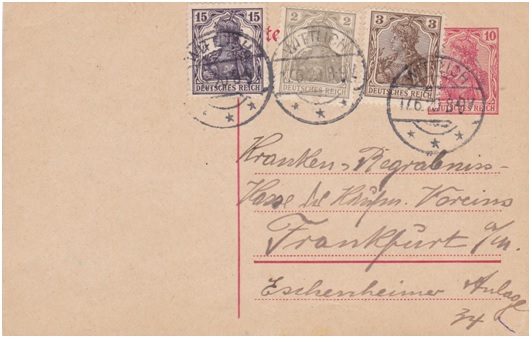 15 15
DEUTSCHES REICH
2 2
DEUTSCHES REICH
3 3
DEUTSCHES REICH
10
REICH
WITTLICH
WITTLICH
17.6.20.
Kranken-Begräbnis-
Kasse des Kaufm. Vereins
Frankfurt a/m.
Eschenheimer Anlage
34